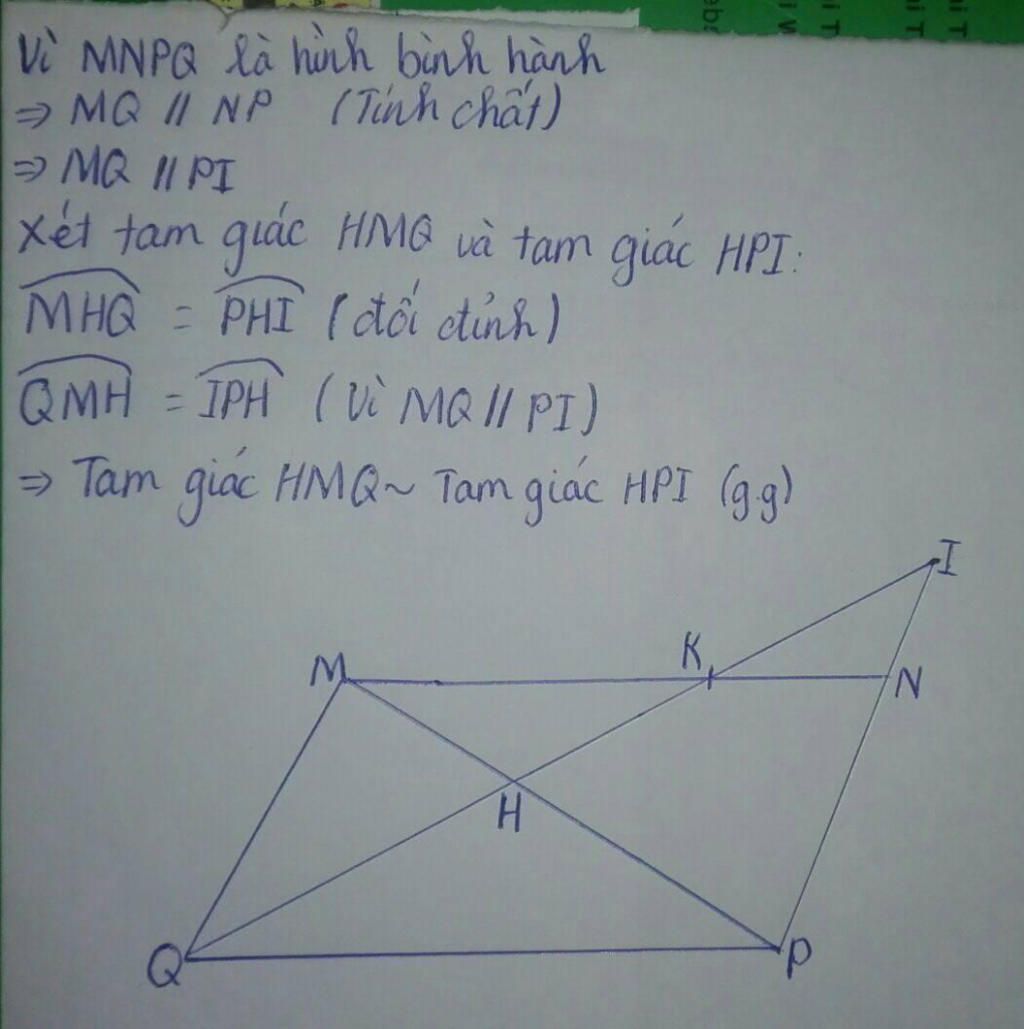 Vì MNPQ là hình bình hành
⇒ MQ // NP (Tính chất)
⇒ MQ // PI
Xét tam giác HMQ và tam giác HPI:
\widehat{MHQ} = \widehat{PHI} (đối đỉnh)
\widehat{QMH} = \widehat{IPH} (Vì MQ // PI)
⇒ Tam giác HMQ ~ Tam giác HPI (g.g)
I
M
K
N
H
Q
P